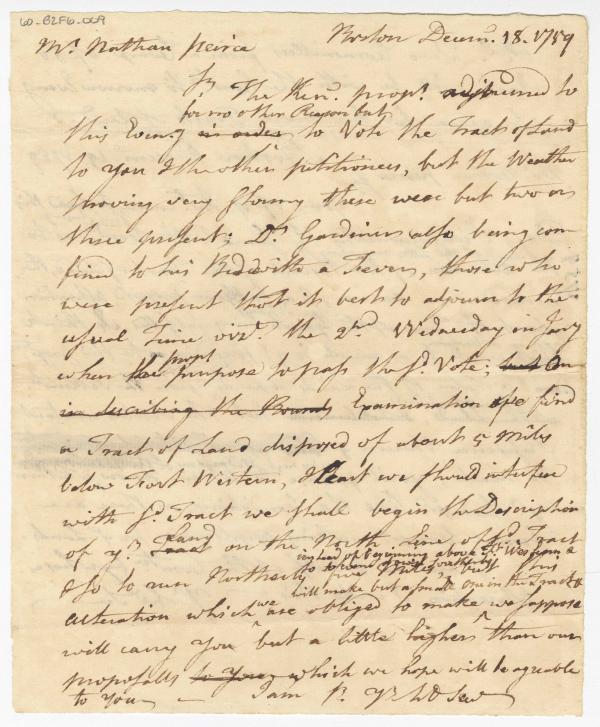 60-B2F6-009
Mr. Nathan Peirce Boston Decemr. 18. 1759
Sr. The Kenr. propr. adjourned to
for no other Reason but
this Evening in order to Vote the Tract of Land
to you & the other petitioners, but the Weather
proving very Stormy there were but two or
three present; Dr. Gardiner also being con
fined to his Bed with a Fever, those who
were present thot it best to adjourn to the
usual Time vizt. the 2nd. Wednesday in Jany
propr
when the purpose to pass the sd. Vote; but on
in describing the Bounds Examination we find
a Tract of Land disposed of about 5 Miles
below Fort Western, & least we should interfere
with sd. Tract we shall begin the Description
Land
of yr. Tract on the North Line of sd. Tract
instead of beginning above Ft. Western &
to run down southerly
& so to run Northerly five Miles, but this
will make but a small in the Tract &
alteration which we are obliged to make we suppose
will carry you but a little higher than our
proposalls to you which we hope will be agreable
to you — I am Sr. Yr. hb Servt